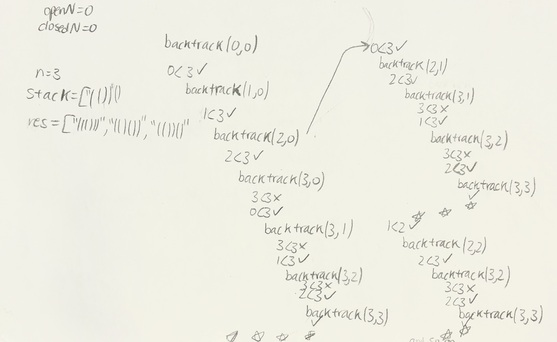 openN=0
closedN=0
n=3
stack=["(())()
res=["((()))","(()())","(())()"
backtrack(0,0)
0<3✓
backtrack(1,0)
1<3✓
backtrack(2,0)
2<3✓
backtrack(3,0)
3<3×
0<3✓
backtrack(3,1)
3<3×
1<3✓
backtrack(3,2)
3<3×
2<3✓
backtrack(3,3)
✓
0<3✓
backtrack(2,1)
2<3✓
backtrack(3,1)
3<3×
1<3✓
backtrack(3,2)
3<3×
2<3✓
backtrack(3,3)
✓
1<2✓
backtrack(2,2)
2<3✓
backtrack(3,2)
3<3×
2<3✓
backtrack(3,3)
✓